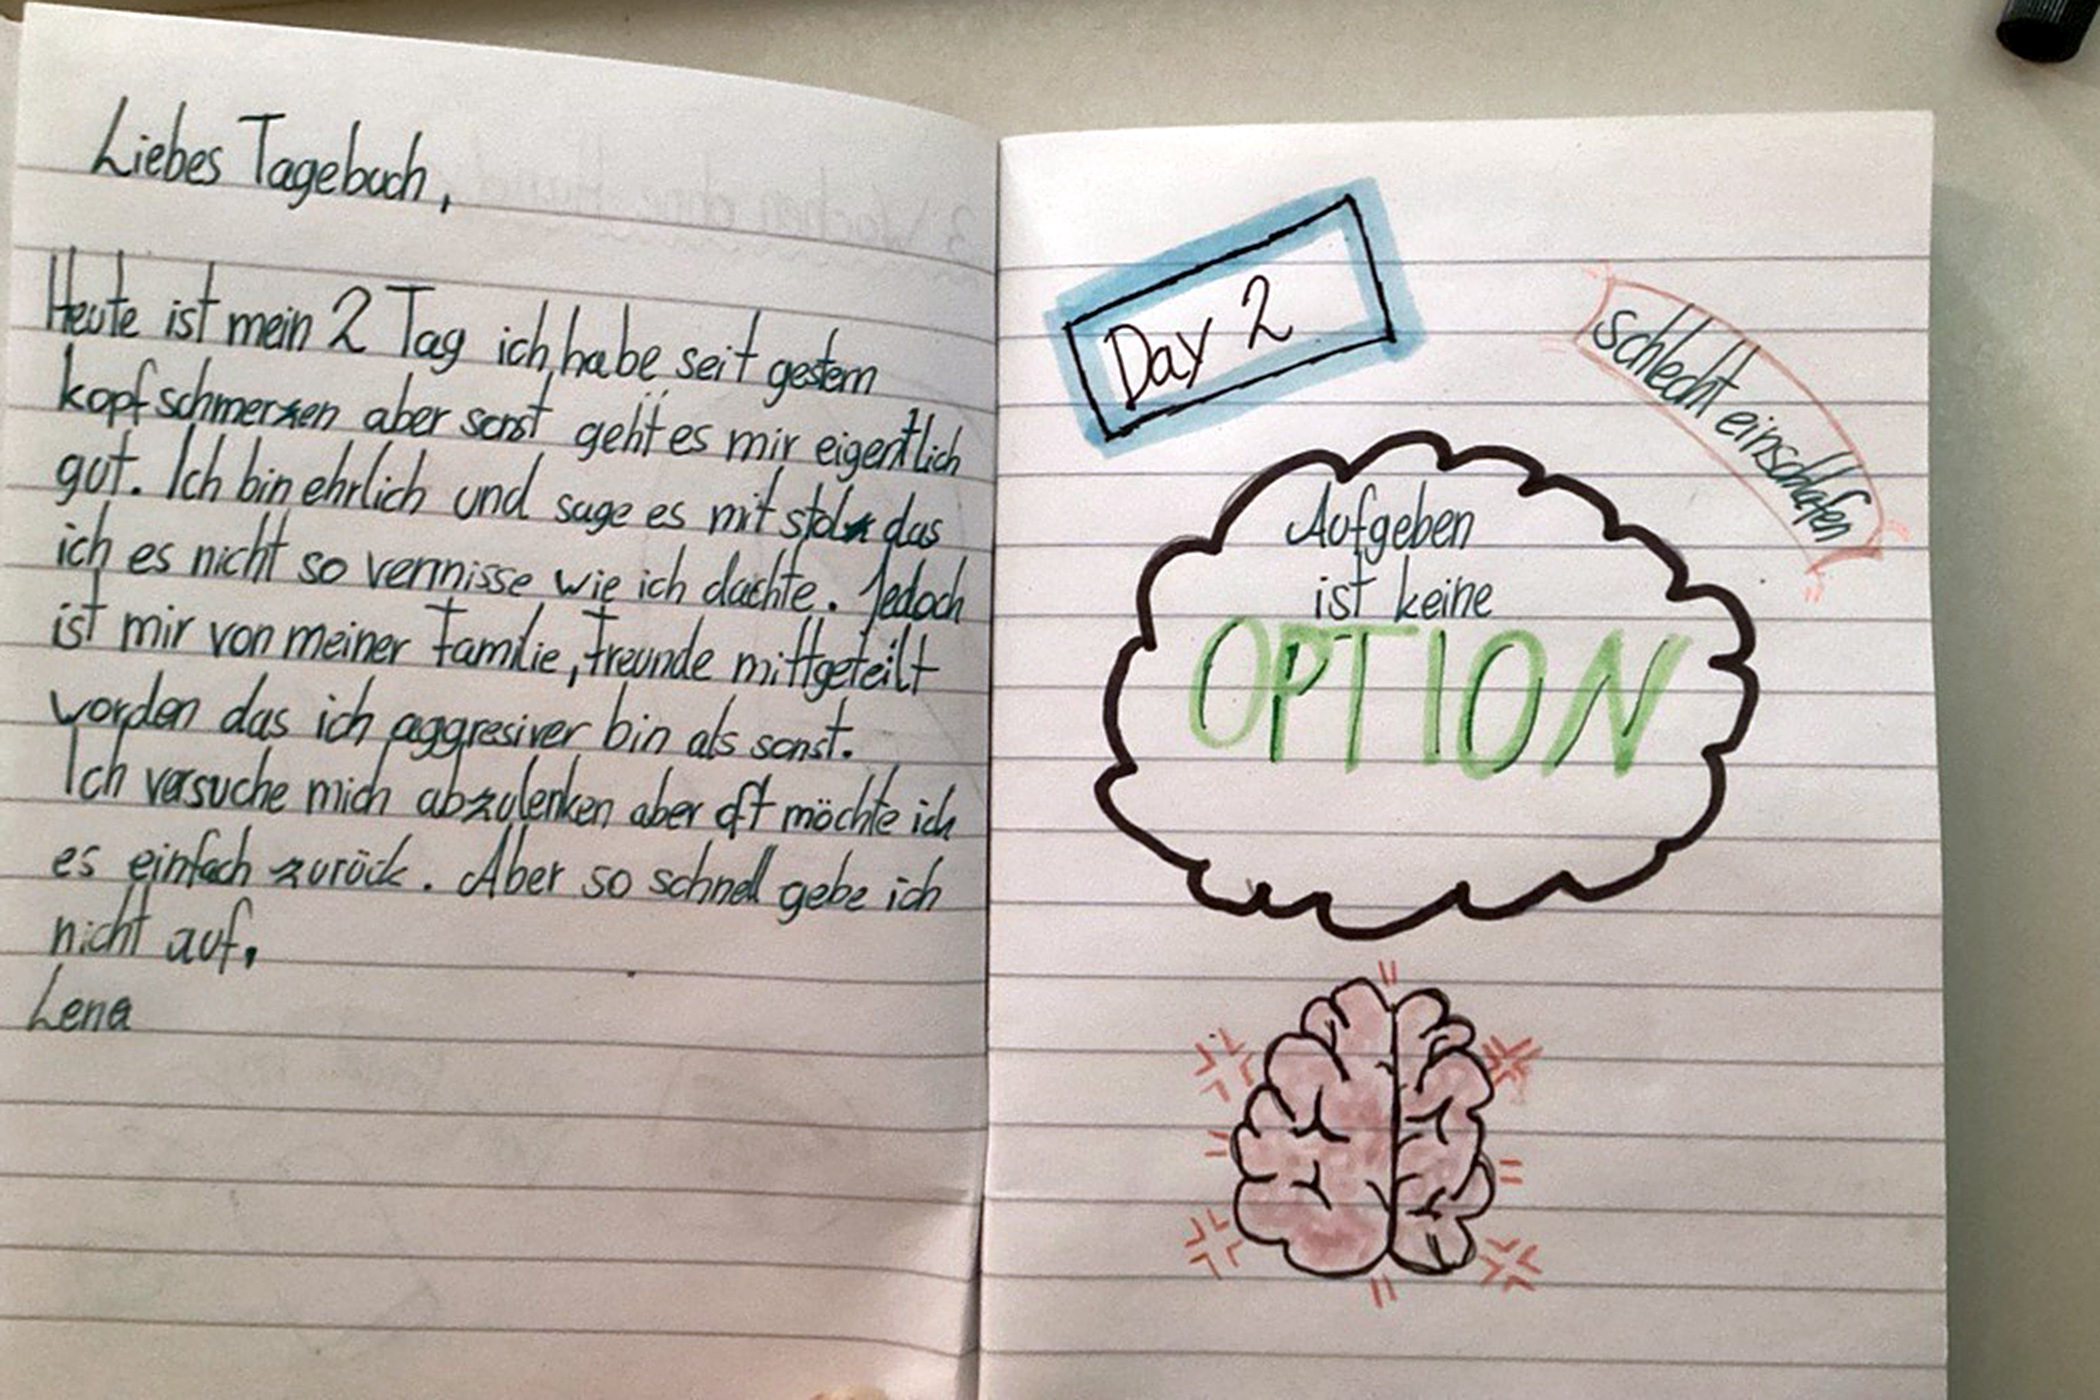 Liebes Tagebuch,
Heute ist mein 2 Tag ich habe seit gestern
kopfschmerzen aber sonst geht es mir eigentlich
gut. Ich bin ehrlich und sage es mit stolz das
ich es nicht so vermisse wie ich dachte. Jedoch
ist mir von meiner Familie, Freunde mittgeteilt
worden das ich aggresiver bin als sonst.
Ich versuche mich abzulenken aber oft möchte ich
es einfach zurück. Aber so schnell gebe ich
nicht auf.
Lena
Day 2
schlecht einschlafen
Aufgeben
ist keine
OPTION